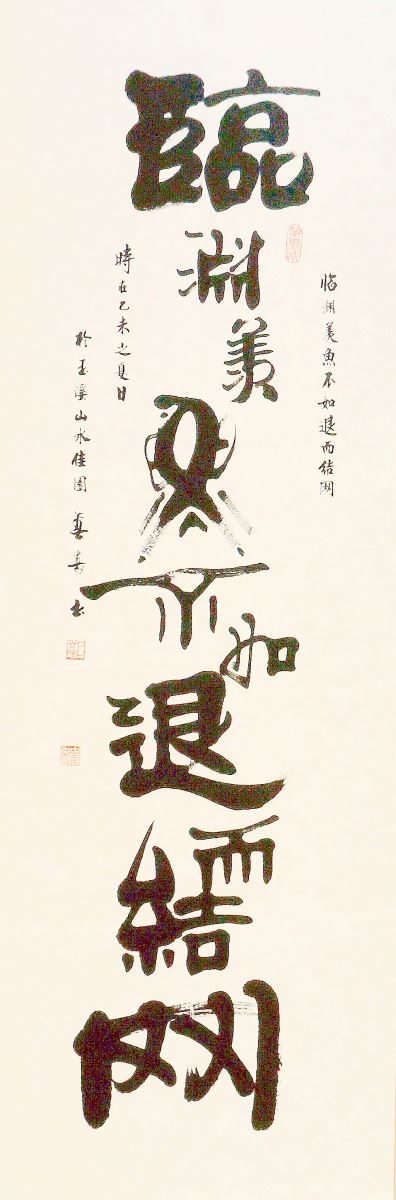 臨淵羡魚不如退而結网
临渊羡鱼不如退而结网
時在乙未之夏日
於玉溪山水佳園